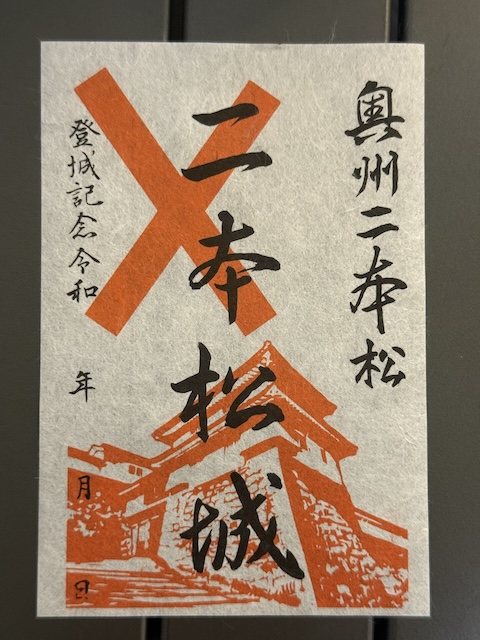 奥州二本松
二本松城
登城記念令和 年 月 日